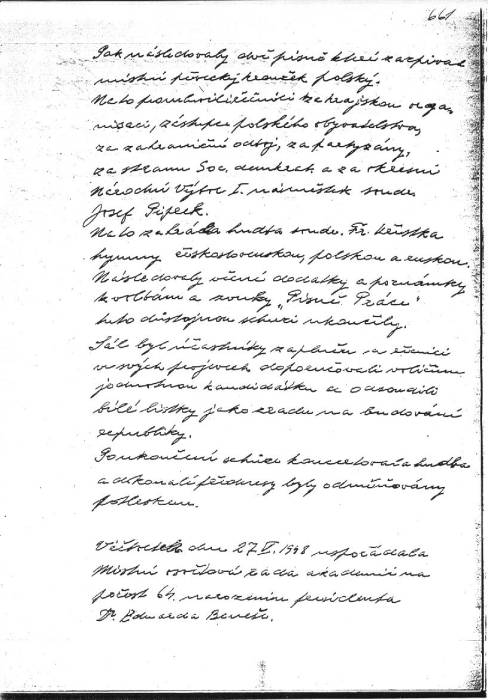 661
Pak následovaly dvě písně které zazpíval
místní pěvecký kroužek polský.
Na to promluvili řečníci za krajskou orga-
nisaci, zástupce polského obyvatelstva,
za zahraniční odboj, za partyzány,
za stranu Soc. demkrat. a za okresní
Národní Výbor I. náměstek soudr.
Josef Pipeck.
Na to zahrála hudba soudr. Fr. Křistka
hymny československou, polskou a ruskou.
Následovaly věcné dodatky a poznámky
k volbám a zvuky „Písně Práce"
tuto důstojnou schuzi ukončily.
Sál byl účastníky zaplněn a řečníci
ve svých projevech doporučovali voličům
jednotnou kandidátku a odsoudili
bílé lístky jako zradu na budování
republiky.
Po ukončení schůze koncertovala hudba
a dokonalé přednesy byly odměňovány
potleskem.
Ve čtvrtek dne 27.V. 1948 uspořádala
Místní osvětová rada akademii na
počest 64. narozenin presidenta
Dr. Edvarda Beneše.